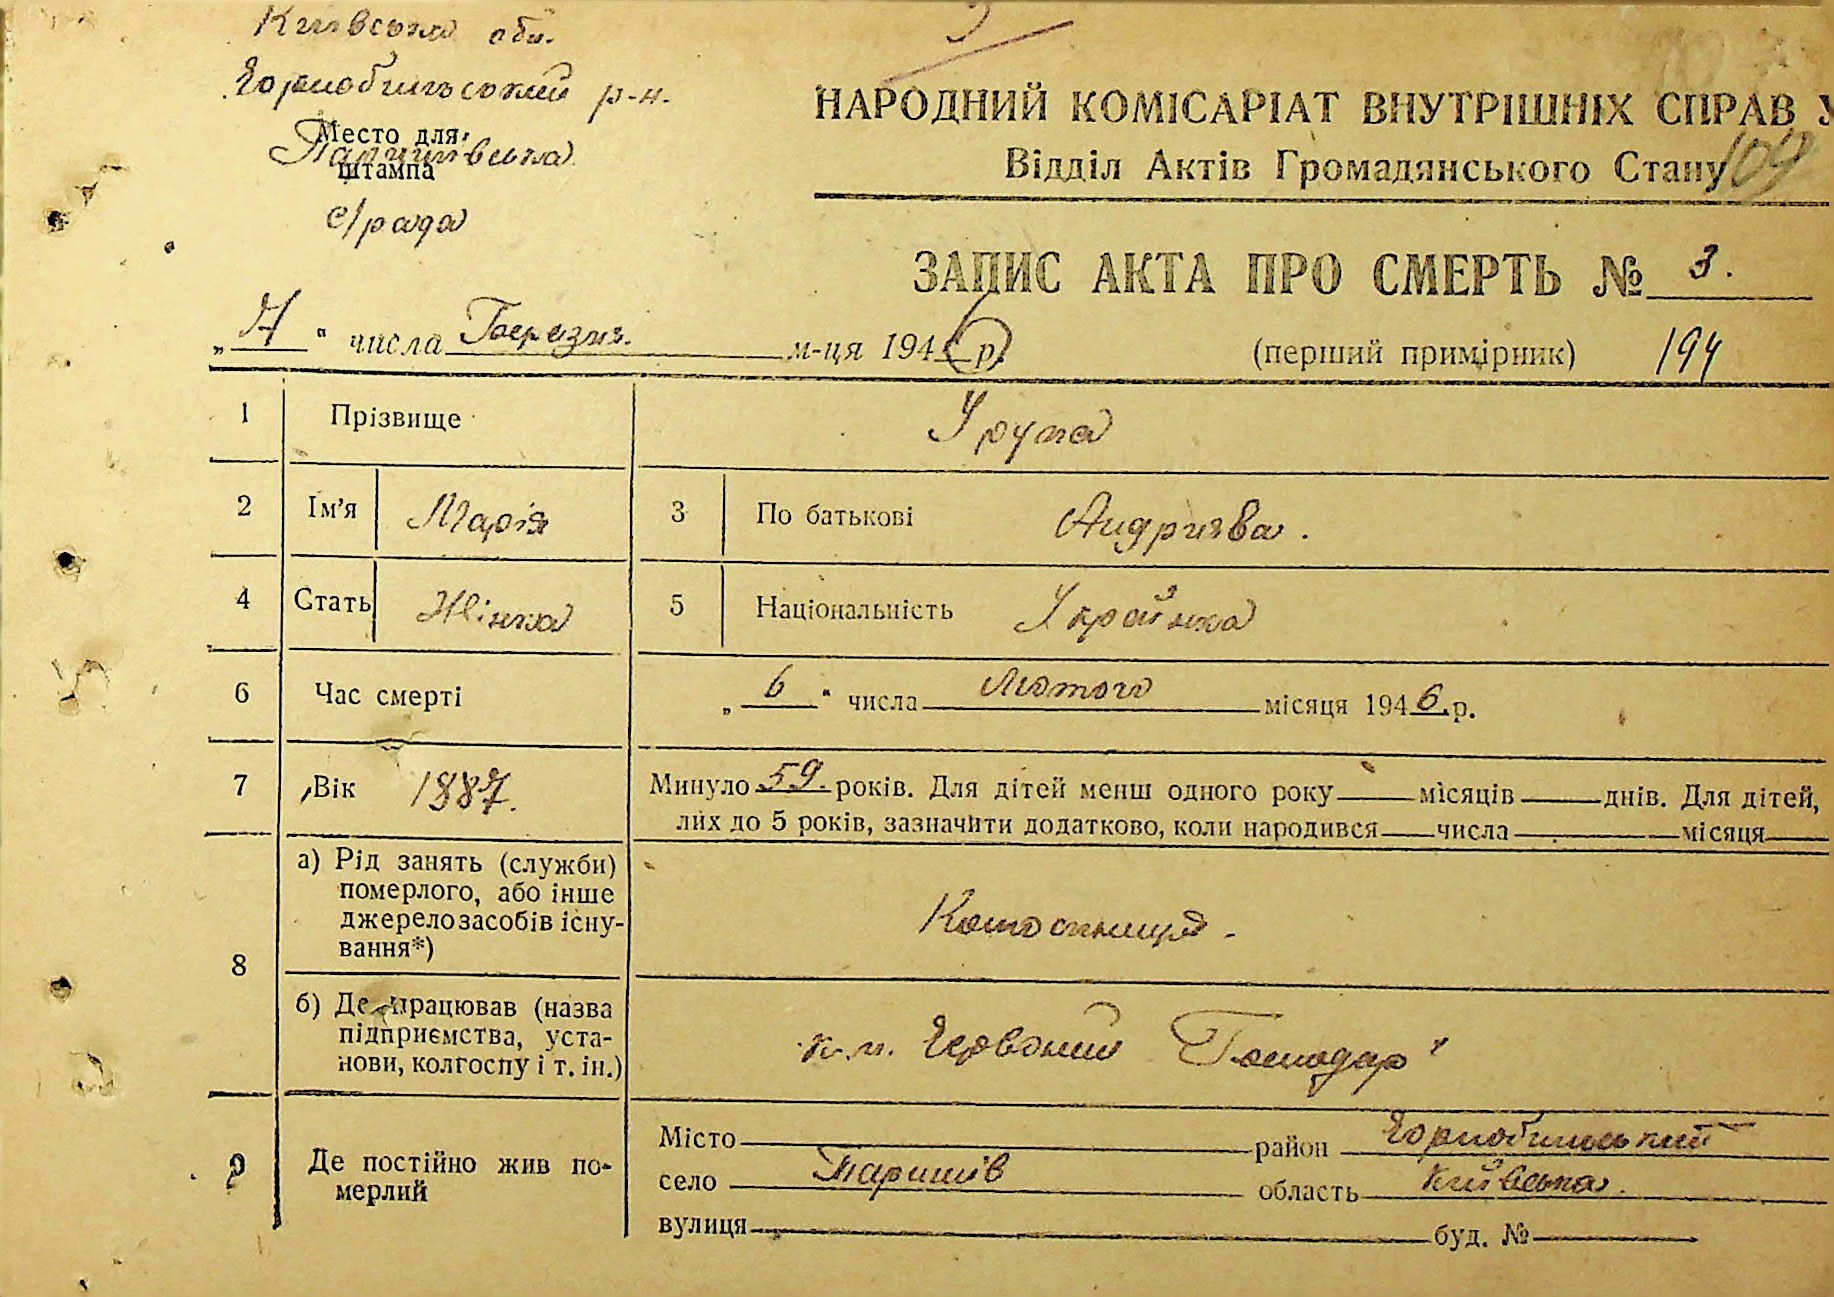 Київська обл.
Чорнобильський р-н.
Место для
штампа
Паришівська
с/рада
НАРОДНИЙ КОМІСАРІАТ ВНУТРІШНІХ СПРАВ У
Відділ Актів Громадянського Стану
109
ЗАПИС АКТА ПРО СМЕРТЬ № 3.
„ 7 " числа Березня м-ця 1946 р.
(перший примірник) 194
1 Прізвище Урупа
2 Ім'я Марія 3 По батькові Андриєва.
4 Стать Жінка 5 Національність Українка
6 Час смерті „ 6 " числа Лютого місяця 1946 р.
7 Вік 1887. Минуло 59 років. Для дітей менш одного року місяців днів. Для дітей,
лих до 5 років, зазначити додатково, коли народився числа місяця
8 а) Рід занять (служби)
померлого, або інше
джерело засобів існу-
вання*)
Колхосниця.
б) Де працював (назва
підприємства, уста-
нови, колгоспу і т. ін.)
Червоний Господар"
9 Де постійно жив по-
мерлий
Місто район Чорнобильський
село Паришів область Київська.
вулиця буд. №